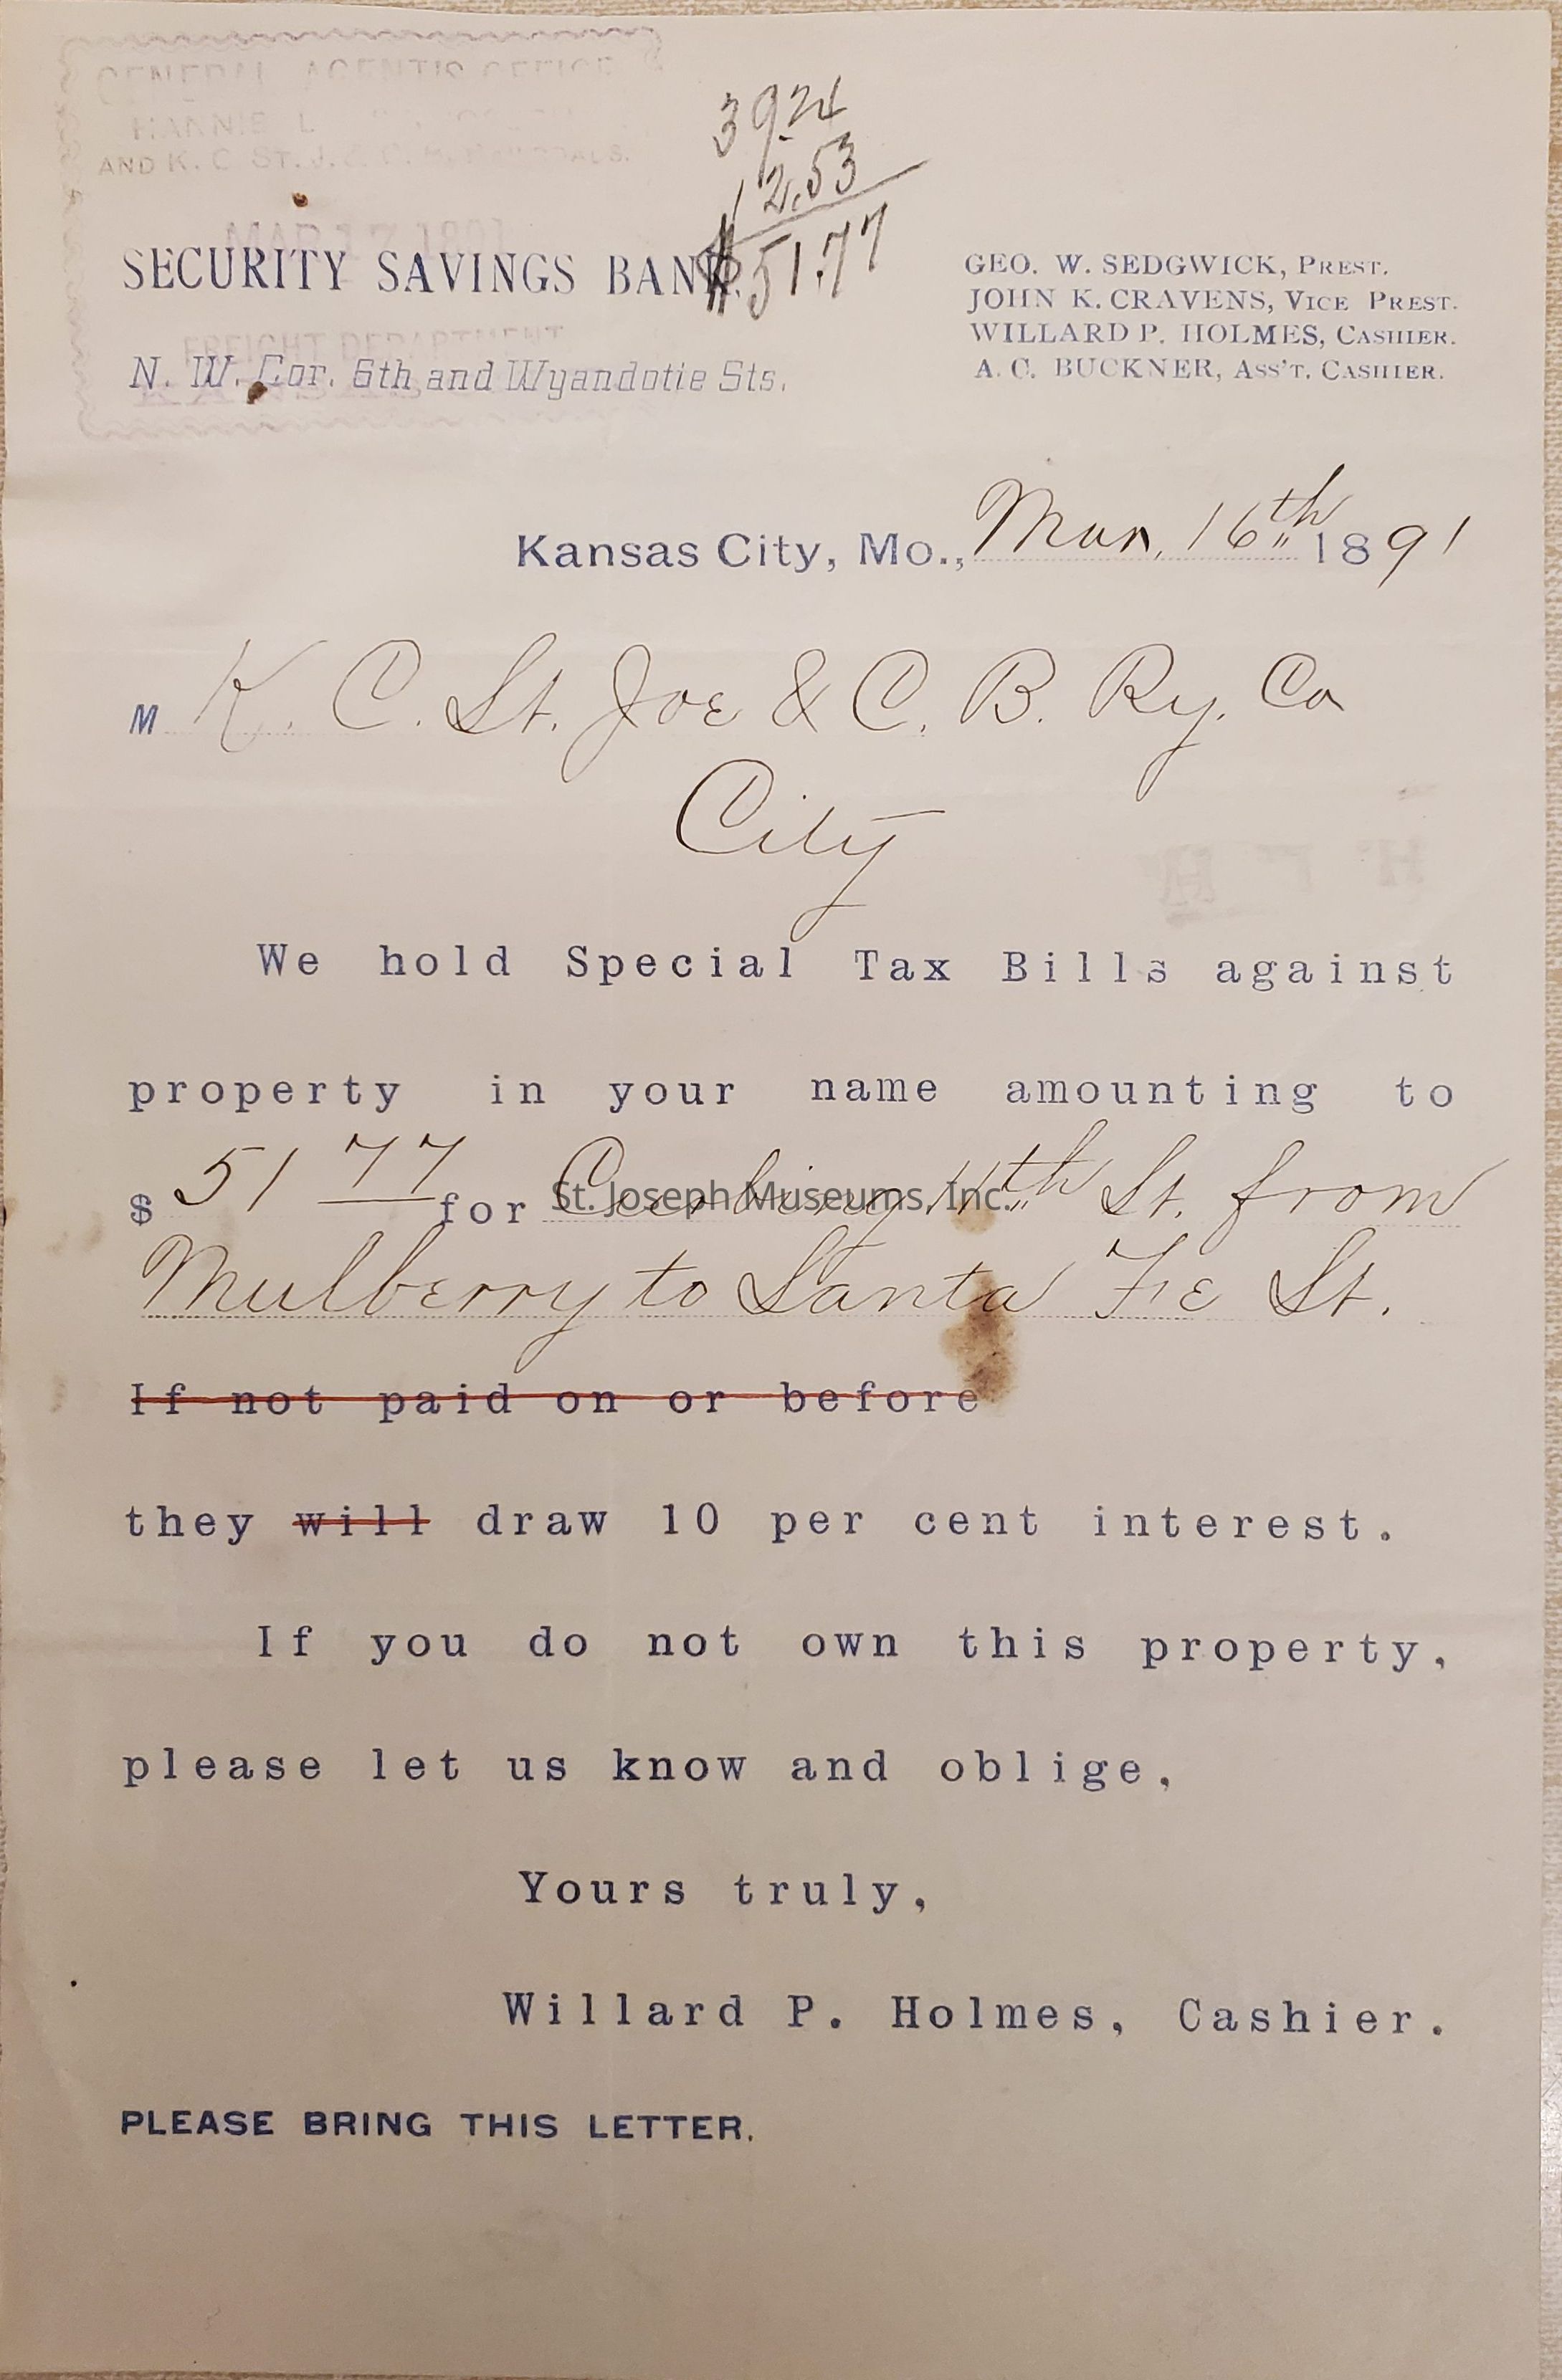 GENERAL AGENT'S OFFICE
AND K. C. ST. J. & C. B. RAILROADS.
MAR 17 1891
FREIGHT DEPARTMENT
39.24
12.53
$51.77
SECURITY SAVINGS BANK.
N. W. Cor. 6th and Wyandotte Sts.
GEO. W. SEDGWICK, PREST.
JOHN K. CRAVENS, VICE PREST.
WILLARD P. HOLMES, CASHIER.
A. C. BUCKNER, ASS'T. CASHIER.
Kansas City, Mo., Mar. 16th 1891
M K. C. St. Joe & C. B. Ry. Co
City
We hold Special Tax Bills against
property in your name amounting to
$ 51 77 for Curbing 11th St. from
St. Joseph Museums, Inc.
Mulberry to Santa Fe St.
If not paid on or before
they will draw 10 per cent interest.
If you do not own this property,
please let us know and oblige,
Yours truly,
Willard P. Holmes, Cashier.
PLEASE BRING THIS LETTER.